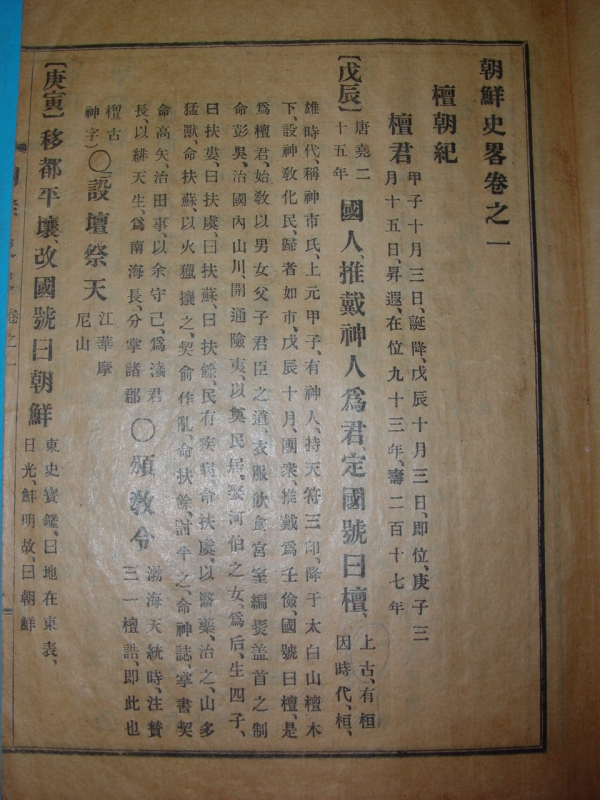 朝鮮史畧卷之一
檀朝紀
檀君 甲子十月三日、誕降、戊辰十月三日、卽位、庚子三
月十五日、昇遐、在位九十三年、壽二百十七年
【戊辰】唐堯二
十五年 國人、推戴神人爲君定國號曰檀、上古、有桓
因時代、桓、
雄時代、稱神市氏、上元甲子、有神人、持天符三印、降于太白山檀木
下、設神敎化民、歸者如市、戊辰十月、團衆、推戴爲壬儉、國號曰檀、是
爲檀君、始敎以男女父子君臣之道、衣服飮食宮室編髮盖首之制
命彭吳、治國內山川、開通險夷、以奠民居、娶河伯之女、爲后、生四子、
曰扶婁、曰扶虞、曰扶蘇、曰扶餘、民有疾病、命扶虞、以醫藥、治之、山多
猛獸、命扶蘇、以火獵攘之、契俞作亂、命扶餘、討平之、命神誌、掌書契
命高矢、治田事、以余守己、爲濊君
長、以緋天生、爲南海長、分掌諸郡 〇頒敎令 渤海天統時、注贊
三一檀誥、即此也
檀古
神字) 〇設壇祭天 江華摩
尼山
【庚寅】移都平壤、改國號曰朝鮮 東史寶鑑、曰地在東表、
日光、鮮明故、曰朝鮮
卷之一